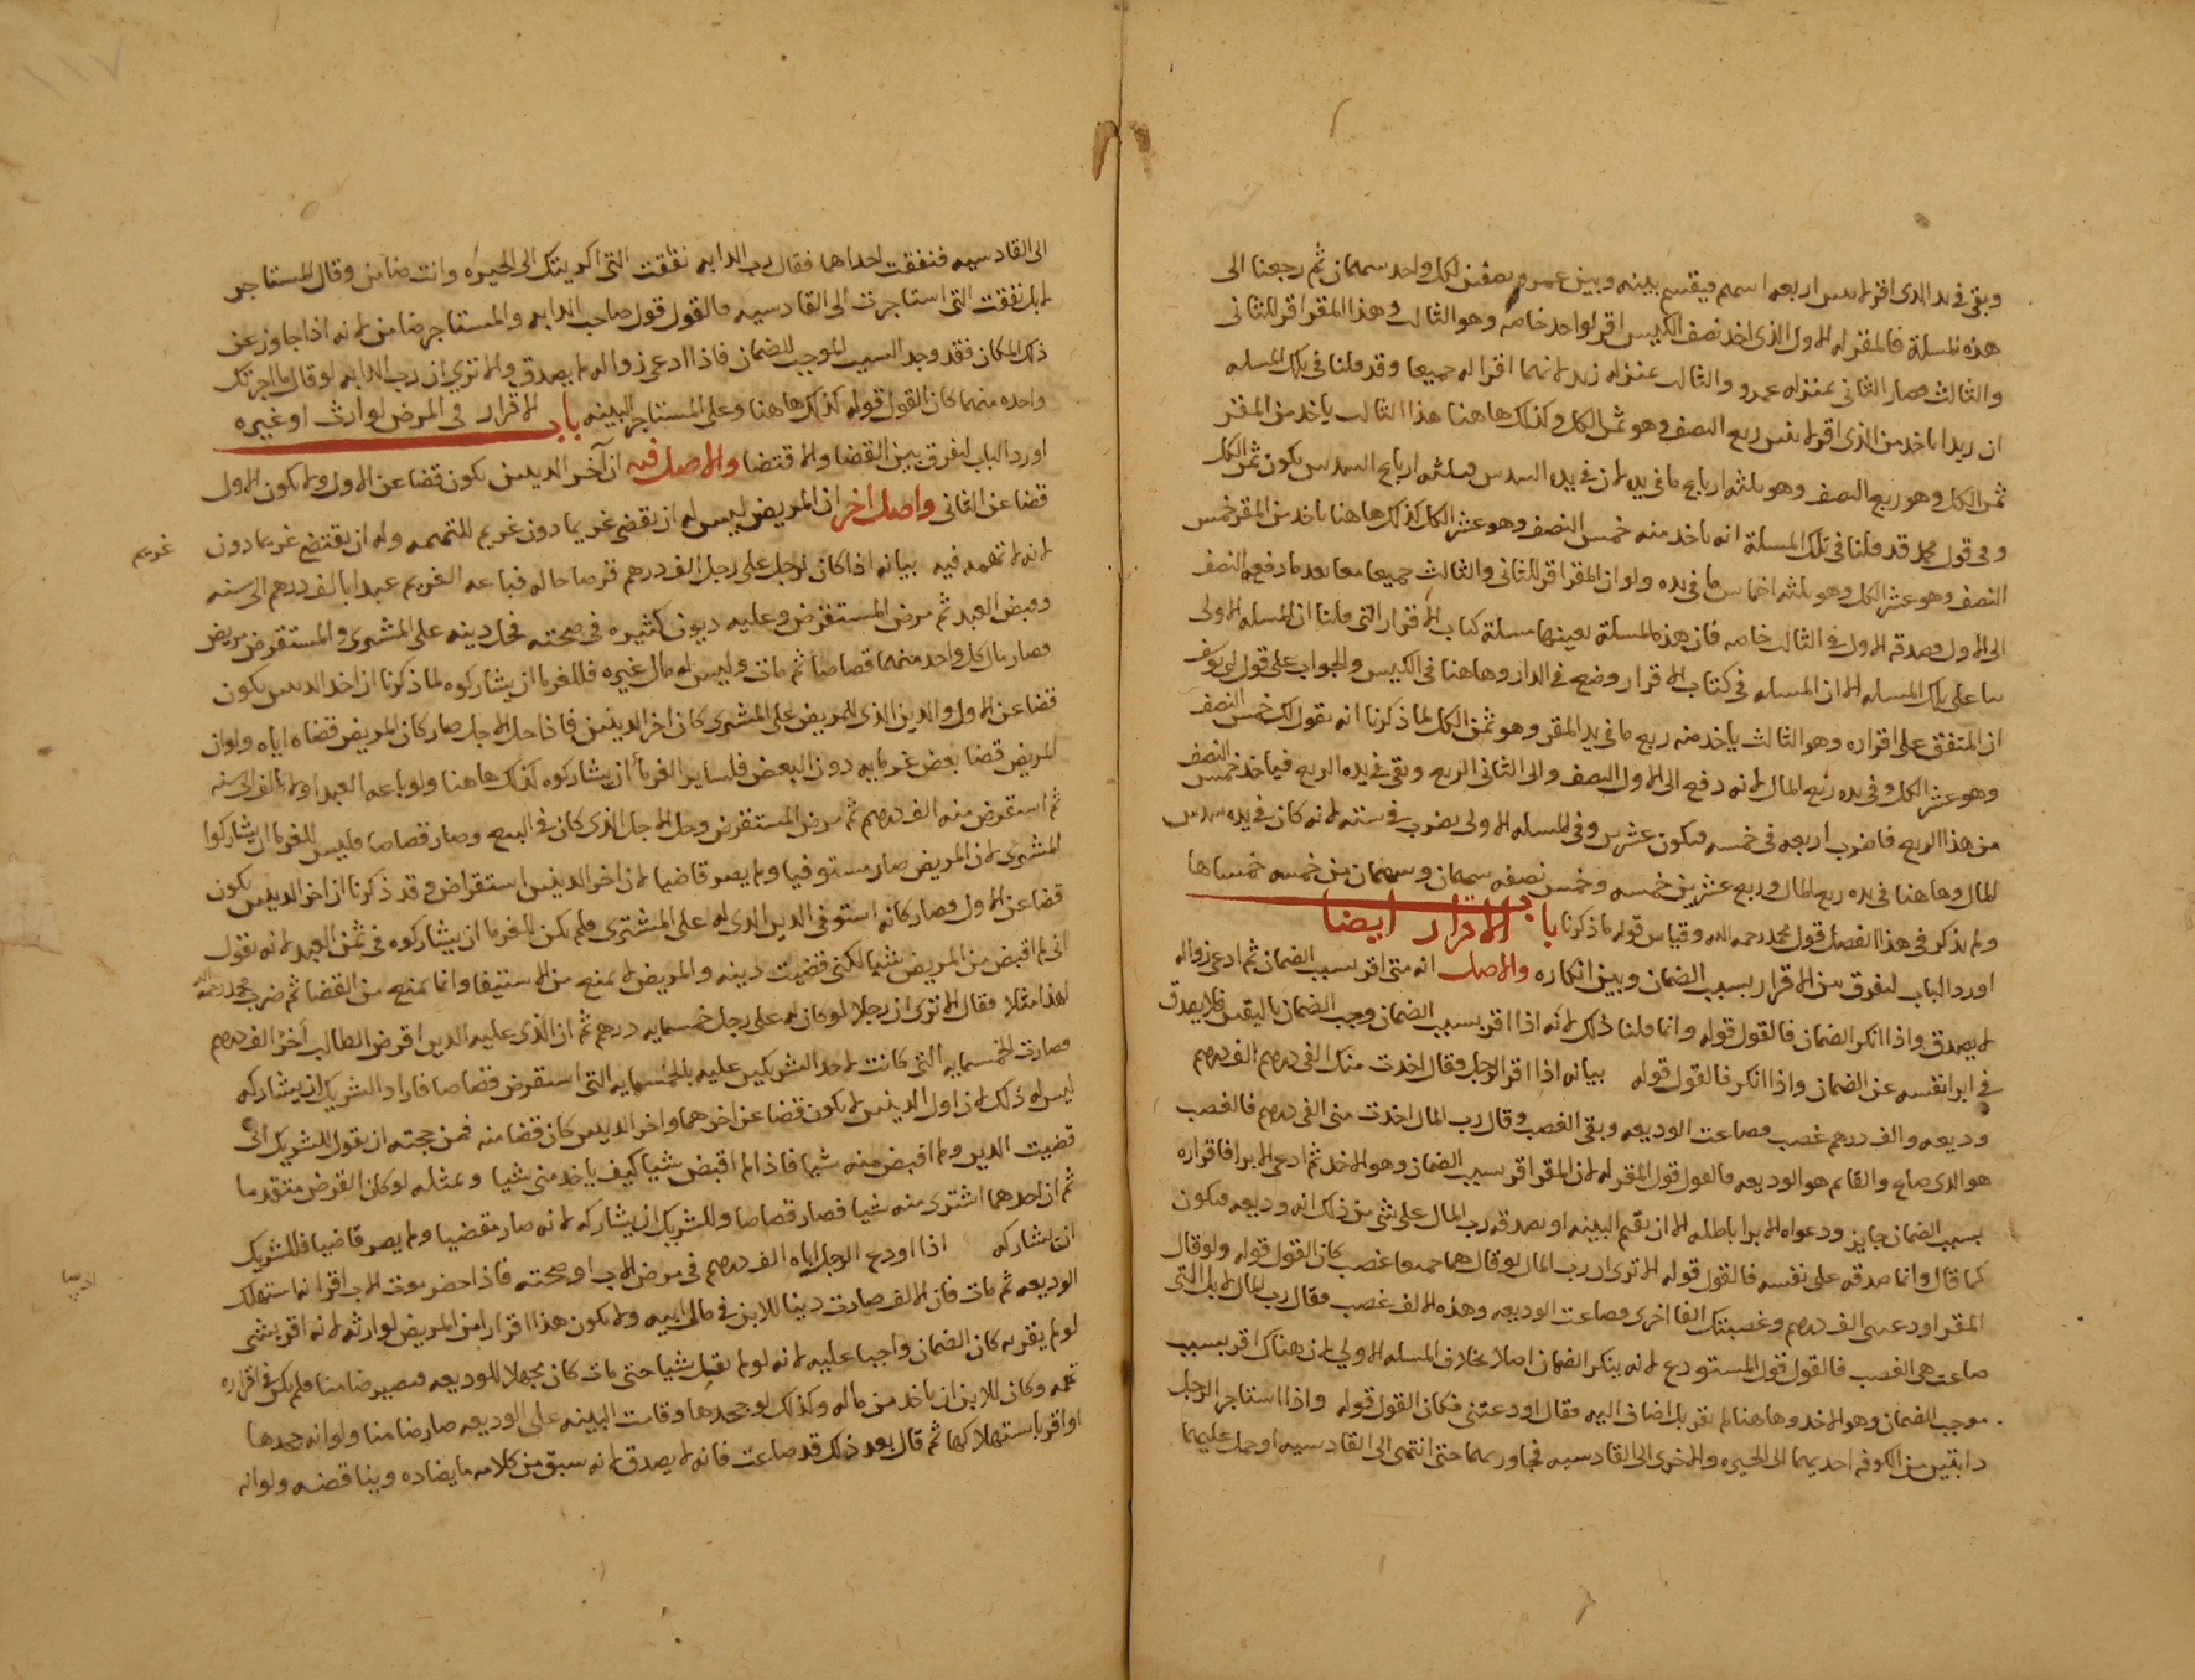 وبقى فى يد الذى اقر لاثنين اربعه اسهم فيقسم بينه وبين عمرو نصفين لكل واحد سهمان ثم رجعنا الى
هذه المسلة فالمقر له الاول الذى اخذ نصف الكيس اقر لواحد خاصه وهو الثالث وهذا المقر اقر للثانى
والثالث فصار الثانى بمنزله عمرو والثالث بمنزله زيد لانهما اقرا له جميعا وقد قلنا فى تلك المسله
ان زيدا ياخذ من الذى اقر لاثنين ربع النصف وهو ثمن الكل وكذلك هاهنا هذا الثالث ياخذ من المقر
ثمن الكل وهو ربع النصف وهو ثلثه ارباع ما فى يده لان فى يده السدس فثلثه ارباع السدس يكون ثمن الكل
وفى قول محمد قد قلنا فى تلك المسلة انه ياخذ منه خمس النصف وهو عشر الكل كذلك هاهنا ياخذ من المقر خمس
النصف وهو عشر الكل وهو ثلثه اخماس ما فى يده ولو ان المقر اقر للثانى والثالث جميعا معا بعد ما دفع النصف
الى الاول وصدقه الاول فى الثالث خاصه فان هذه المسلة بعينها مسلة كتاب الاقرار التى قلنا ان المسله الاولى
بنا على تلك المسله الا ان المسله فى كتاب الاقرار وضع فى الدار وهاهنا فى الكيس والجواب على قول ابى يوسف
ان المتفق على اقراره وهو الثالث ياخذ منه ربع ما فى يد المقر وهو ثمن الكل لما ذكرنا انه يقول لك خمس النصف
وهو عشر الكل وفى يده ربع المال لانه دفع الى الاول النصف والى الثانى الربع وبقى فى يده الربع فياخذ خمس النصف
من هذا الربع فاضرب اربعه فى خمسه فيكون عشرين وفى المسله الاولى يضرب فى سته لانه كان فى يده سدس
المال وهاهنا فى يده ربع المال وربع عشرين خمسه وخمس نصفه سهمان وسهمان من خمسه خمساها
ولم يذكر فى هذا الفصل قول محمد رحمه الله وقياس قوله ما ذكرنا باب الاقرار ايضا
اورد الباب لنفرق بين الاقرار بسبب الضمان وبين انكاره والاصل انه متى اقر بسبب الضمان ثم ادعى زواله
لا يصدق واذا انكر الضمان فالقول قوله وانما قلنا ذلك لانه اذا اقر بسبب الضمان وجب الضمان باليقين فلا يصدق
فى ابرا نفسه عن الضمان واذا انكر فالقول قوله بيانه اذا اقر الرجل فقال اخذت منك الفى درهم الف درهم
وديعه والف درهم غصب فضاعت الوديعه وبقى الغصب وقال رب المال اخذت منى الفى درهم فالغصب
هو الذى ضاع والقايم هو الوديعه فالقول قول المقر له لان المقر اقر بسبب الضمان وهو الاخذ ثم ادعى الابرا فاقراره
بسبب الضمان جايز ودعواه الابرا باطله الا ان يقيم البينه او يصدقه رب المال على شى من ذلك انه وديعه فيكون
كما قال وانما صدقه على نفسه فالقول قوله الا ترى ان رب المال لو قال هما جميعا غصب كان القول قوله ولو قال
المقر اودعتنى الف درهم وغصبتك الفا اخرى وضاعت الوديعه وهذه الالف غصب فقال رب المال لا بل التى
ضاعت هى الغصب فالقول قول المستودع لانه ينكر الضمان اصلا بخلاف المسله الاولى لان هناك اقر بسبب
موجب الضمان وهو الاخذ وهاهنا لم يقر بل اضاف اليه فقال اودعتنى فكان القول قوله واذا استاجر الرجل
دابتين من الكوفه احديهما الى الحيره والاخرى الى القادسيه فجاوز بهما حتى انتهى الى القادسيه او حمل عليهما
الى القادسيه فنفقت احداهما فقال رب الدابه نفقت التى اكريتك الى الحيره وانت ضامن وقال المستاجر
لا بل نفقت التى استاجرت الى القادسيه فالقول قول صاحب الدابه والمستاجر ضامن لانه اذا جاوز عن
ذلك المكان فقد وجد السبب الموجب للضمان فاذا ادعى زواله لا يصدق والا ترى ان رب الدابه لو قال ما اجرتك
واحده منهما كان القول قوله كذلك هاهنا وعلى المستاجر البينه باب الاقرار فى المرض لوارث او غيره
اورد الباب لنفرق بين القضا والاقتضا والاصل فيه ان آخر الدينين يكون قضا عن الاول ولا يكون الاول
قضا عن الثانى واصل اخر ان المريض ليس له ان يقضى غريما دون غريم للتهمه وله ان يقتضى غريما دون غريم
لانه لا تهمه فيه بيانه اذا كان لرجل على رجل الف درهم قرضا حاله فباعه الغريم عبدا بالف درهم الى سنه
وقبض العبد ثم مرض المستقرض وعليه ديون كثيره فى صحته فحل دينه على المشترى والمستقرض مريض
فصار مال كل واحد منهما قصاصا ثم مات وليس له مال غيره فللغرما ان يشاركوه لما ذكرنا ان اخر الدينين يكون
قضا عن الاول والدين الذى للمريض على المشترى كان اخر الدينين فاذا حل الاجل صار كان المريض قضاه اياه ولو ان
المريض قضا بعض غرمايه دون البعض فلساير الغرما ان يشاركوه كذلك هاهنا ولو باعه العبد اولا بالف الى سنه
ثم استقرض منه الف درهم ثم مرض المستقرض وحل الاجل الذى كان فى البيع وصار قصاصا فليس للغرما ان يشاركوا
المشترى لان المريض صار مستوفيا ولم يصر قاضيا لان اخر الدينين استقراض وقد ذكرنا ان اخر الدينين يكون
قضا عن الاول فصار كانه استوفى الدين الذى له على المشترى فلم يكن للغرما ان يشاركوه فى ثمن العبد لانه يقول
انى لم اقبض من المريض شيا لكنى قضيت دينه والمريض لا يمنع من الاستيفا وانما يمنع من القضا ثم ضرب محمد رحمه الله
لهذا مثلا فقال الا ترى ان رجلا لو كان له على رجل خمسمايه درهم ثم ان الذى عليه الدين اقرض الطالب آخر الف درهم
فصارت الخمسمايه التى كانت لاحد الشريكين عليه بالخمسمايه التى استقرض قصاصا فاراد الشريك ان يشاركه
ليس له ذلك لان اول الدينين لا يكون قضا عن اخرهما واخر الدينين كان قضا منه فمن حجته ان يقول للشريك انى
قضيت الدين ولم اقبض منه شيا فاذا لم اقبض شيا كيف ياخذ منى شيا وبمثله لو كان القرض متقدما
ثم ان احدهما اشترى منه شيا فصار قصاصا وللشريك ان يشاركه لانه صار مقتضيا ولم يصر قاضيا فللشريك
ان يشاركه اذا اودع الرجل اباه الف درهم فى مرض الاب او صحته فاذا حضر موت الاب اقر انه استهلك
الوديعه ثم مات فان الالف صارت دينا للابن فى مال ابيه ولا يكون هذا اقرارا من المريض لوارثه لانه اقر بشى
لو لم يقر به كان الضمان واجبا عليه لانه لو لم يقل شيا حتى مات كان مجهلا للوديعه فيصير ضامنا فلم يكن فى اقراره
تهمه وكان للابن ان ياخذ من ماله وكذلك لو جحدها وقامت البينه على الوديعه صار ضامنا ولو انه جحدها
او اقر باستهلاكها ثم قال بعد ذلك قد ضاعت فانه لا يصدق لانه سبق من كلامه ما يضاده ويناقضه ولو انه